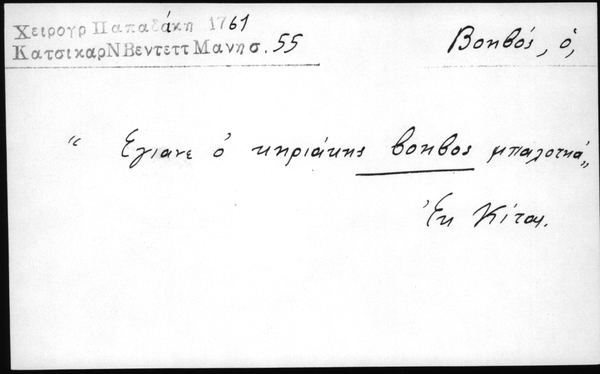 Χειρογρ Παπαδάκη 1761
ΚατσικαρΝΒεντεττΜανησ. 55
Βοηβός, ὁ,
“ Εγιανε ὁ κηριάκης βοηβος μπαλοτηά „
Ἐκ Κίτας.